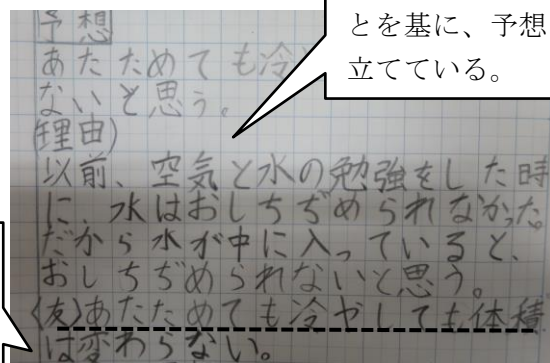 とを基に、予想
立てている。
予想
あたためても冷
ないと思う。
(理由)
以前、空気と水の勉強をした時
に、水はおしちぢめられなかった。
だから水が中に入っていると、
おしちぢめられないと思う。
(友)あたためても冷やしても体積
は変わらない。